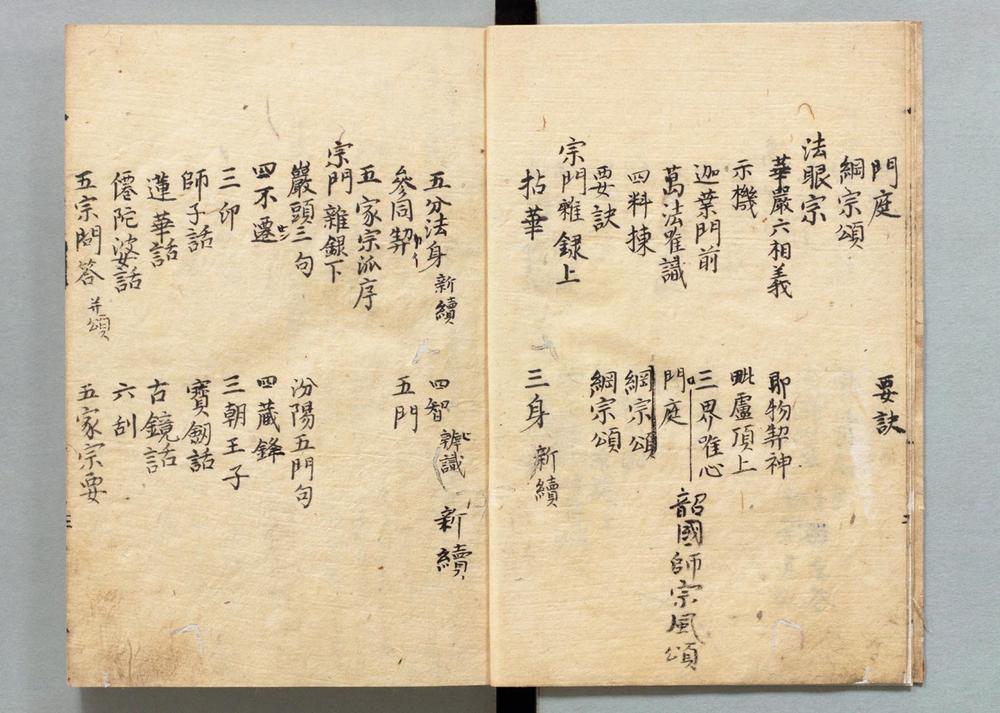 門庭 要訣
綱宗頌
法眼宗
華嚴六相義 即物契神
示機 毗盧頂上
迦葉門前 三界唯心
萬法唯識 門庭 韶國師宗風頌
四料揀 綱宗頌
要訣 綱宗頌
宗門雜録上
拈華 三身 新續
五分法身 新續 四智 辨識 新續
參同契 五門
五家宗派序
宗門雜録下
巖頭三句 汾陽五門句
四不遷 四藏鋒
三印 三朝王子
師子話 寶劔話
蓮華話 古鏡話
僊陀婆話 六刮
五宗問答 并頌 五家宗要